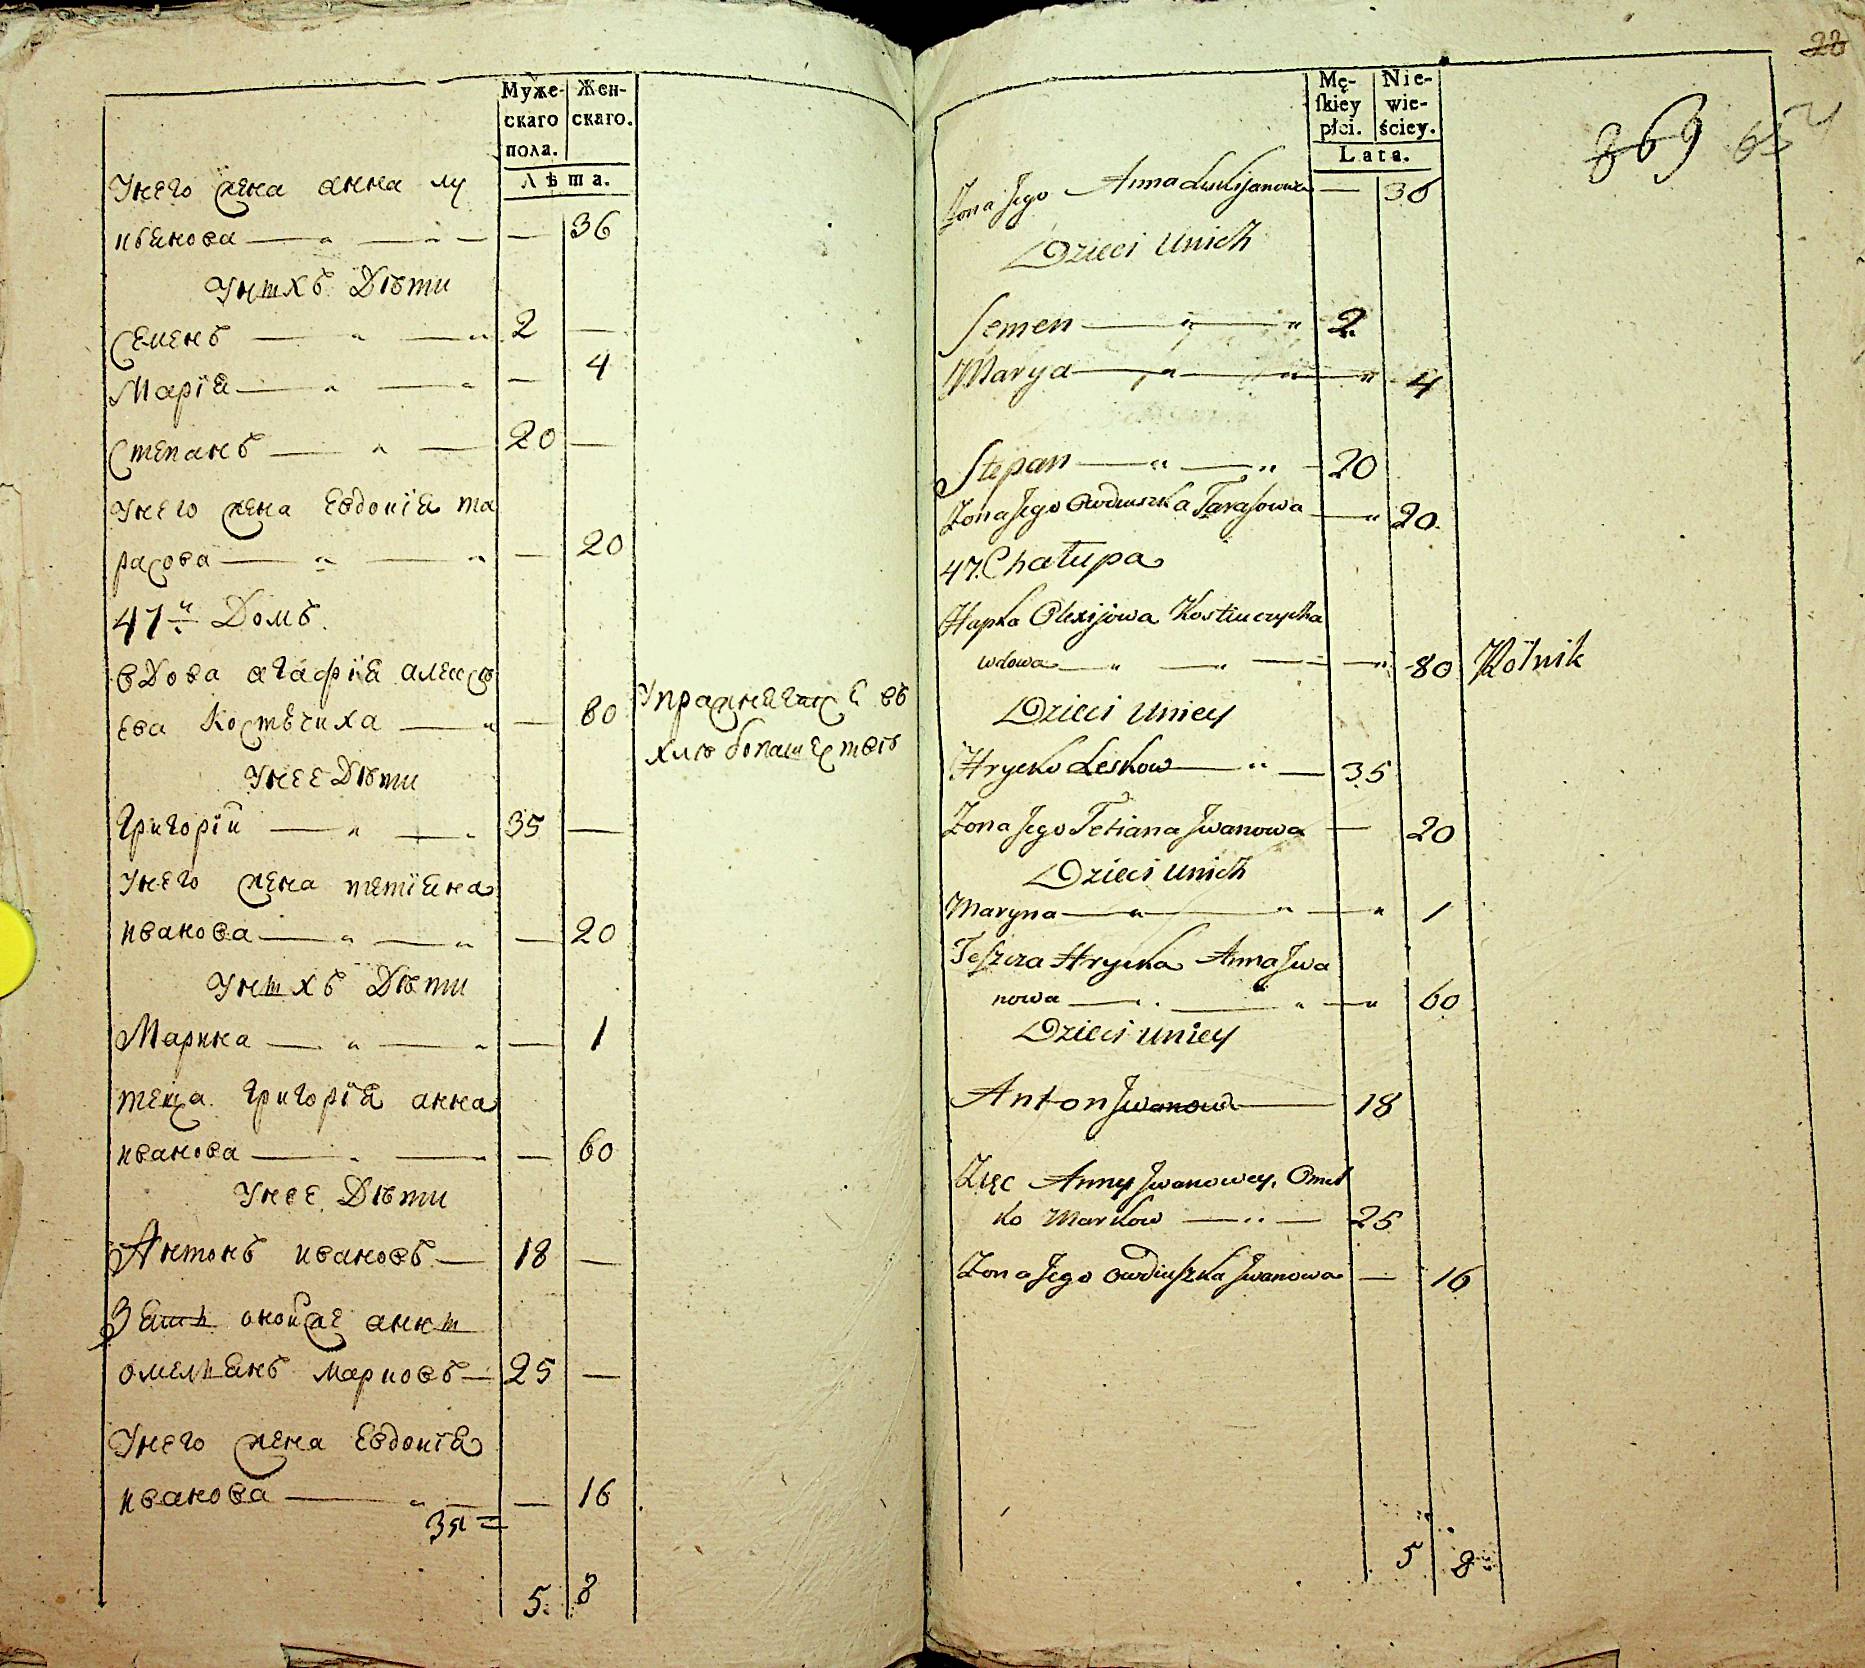 Муже-
скаго
пола.
Жен-
скаго.
Лѣта.
Унего жена анна лу
кьянова — 36
Унихъ Дѣти
Семенъ — 2 —
Марія — — 4
Степанъ — 20 —
Унего жена Евдокія та
расова — — 20
47й Домъ
вдова агафія алексѣ
ева Костючиха — — 80 Упражняется въ
хлѣбопашествѣ
Унее Дѣти
Григорій — 35 —
Унего жена тетіяна
иванова — — 20
Унихъ Дѣти
Марина — — 1
теща григорія анна
иванова — — 60
Унее Дѣти
Антонъ ивановъ — 18 —
Зять оной же анни
омельянъ марковъ — 25 —
Унего жена Евдокія
иванова — — 16
5. 8
28
Mę-
skiey
płci.
Nie-
wie-
ściey.
Lata.
369
Zona Jego Anna Lukijanowa — 36
Dzieci Unich
Semen — 2
Marya — 4
Stepan — 20
Zona Jego Owdiuszka Tarasowa — 20
47. Chałupa
Hapka Olexijowa Kostiuczycha
wdowa — 80 Rolnik
Dzieci Uniey
Hrycko Leskow — 35
Zona Jego Tetiana Jwanowa — 20
Dzieci Unich
Maryna — 1
Teszcza Hrycka Anna Jwa
nowa — 60
Dzieci Uniey
Anton Jwanow — 18
Zięc Anny Jwanowey, Omel
ko Markow — 25
Zona Jego Owdiuszka Jwanowa — 16
5 8